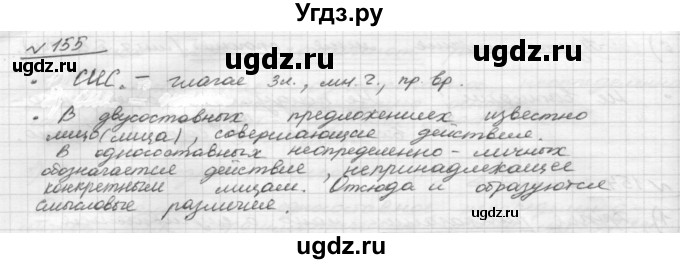 Угдз.ру
№155
• СИС. – глагол 3л., мн.ч., пр.вр.
• В двусоставных предложениях известно
лицо(лица), совершающие действие.
В односоставных неопределенно-личных
обозначается действие, непринадлежащее
конкретным лицам. Отсюда и образуются
смысловые различия.
ugdz.ru ugdz.ru ugdz.ru
ugdz.ru ugdz.ru ugdz.ru
ugdz.ru ugdz.ru
ugdz.ru